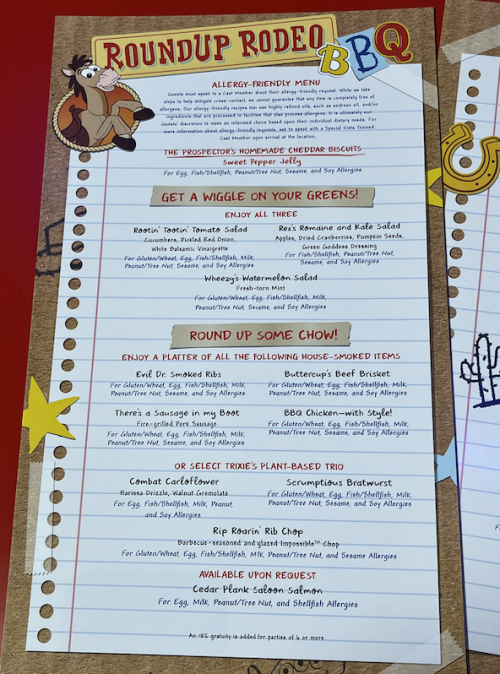 ROUNDUP RODEO
BBQ
ALLERGY-FRIENDLY MENU
Guests must speak to a Cast Member about their allergy-friendly request. While we take
steps to help mitigate cross-contact, we cannot guarantee that any item is completely free of
allergens. Our allergy-friendly recipes may use highly refined oils, such as soybean oil, and/or
ingredients that are processed in facilities that also process allergens. It is ultimately our
Guests' discretion to make an informed choice based upon their individual dietary needs. For
more information about allergy-friendly requests, ask to speak with a Special Diets Trained
Cast Member upon arrival at the location.
THE PROSPECTOR'S HOMEMADE CHEDDAR BISCUITS
Sweet Pepper Jelly
For Egg, Fish/Shellfish, Peanut/Tree Nut, Sesame, and Soy Allergies
GET A WIGGLE ON YOUR GREENS!
ENJOY ALL THREE
Rootin' Tootin' Tomato Salad
Cucumbers, Pickled Red Onion,
White Balsamic Vinaigrette
For Gluten/Wheat, Egg, Fish/Shellfish, Milk,
Peanut/Tree Nut, Sesame, and Soy Allergies
Rex's Romaine and Kale Salad
Apples, Dried Cranberries, Pumpkin Seeds,
Green Goddess Dressing
For Fish/Shellfish, Peanut/Tree Nut,
Sesame, and Soy Allergies
Wheezy's Watermelon Salad
Fresh-torn Mint
For Gluten/Wheat, Egg, Fish/Shellfish, Milk,
Peanut/Tree Nut, Sesame, and Soy Allergies
ROUND UP SOME CHOW!
ENJOY A PLATTER OF ALL THE FOLLOWING HOUSE-SMOKED ITEMS
Evil Dr. Smoked Ribs
For Gluten/Wheat, Egg, Fish/Shellfish, Milk,
Peanut/Tree Nut, Sesame, and Soy Allergies
Buttercup's Beef Brisket
For Gluten/Wheat, Egg, Fish/Shellfish, Milk,
Peanut/Tree Nut, Sesame, and Soy Allergies
There's a Sausage in my Boot
Fire-grilled Pork Sausage
For Gluten/Wheat, Egg, Fish/Shellfish, Milk,
Peanut/Tree Nut, Sesame, and Soy Allergies
BBQ Chicken—with Style!
For Gluten/Wheat, Egg, Fish/Shellfish, Milk,
Peanut/Tree Nut, Sesame, and Soy Allergies
OR SELECT TRIXIE'S PLANT-BASED TRIO
Combat Carloflower
Harissa Drizzle, Walnut Gremolata
For Egg, Fish/Shellfish, Milk, Peanut,
and Soy Allergies
Scrumptious Bratwurst
For Gluten/Wheat, Egg, Fish/Shellfish, Milk,
Peanut/Tree Nut, Sesame, and Soy Allergies
Rip Roarin' Rib Chop
Barbecue-seasoned and glazed Impossible™ Chop
For Gluten/Wheat, Egg, Fish/Shellfish, Milk, Peanut/Tree Nut, and Sesame Allergies
AVAILABLE UPON REQUEST
Cedar Plank Saloon Salmon
For Egg, Milk, Peanut/Tree Nut, and Shellfish Allergies
An 18% gratuity is added for parties of 6 or more.